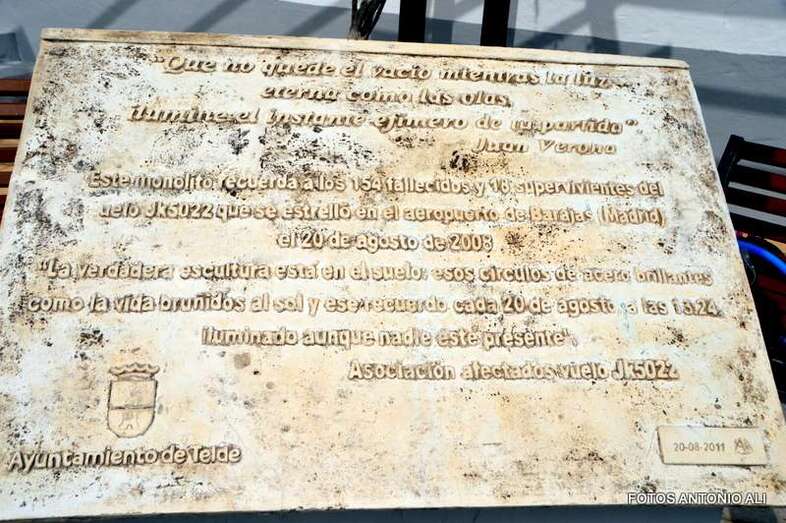 "Que no quede el vacío mientras la luz
eterna como las olas,
ilumine el instante efímero de tu partida"
Juan Verona
Este monolito recuerda a los 154 fallecidos y 18 supervivientes del
vuelo Jk5022 que se estrelló en el aeropuerto de Barajas (Madrid)
el 20 de agosto de 2008
"La verdadera escultura está en el suelo: esos círculos de acero brillantes
como la vida bruñidos al sol y ese recuerdo cada 20 de agosto, a las 14:24,
iluminado aunque nadie esté presente".
Asociación afectados vuelo Jk5022
Ayuntamiento de Telde
20-08-2011
FOTOS ANTONIO ALI